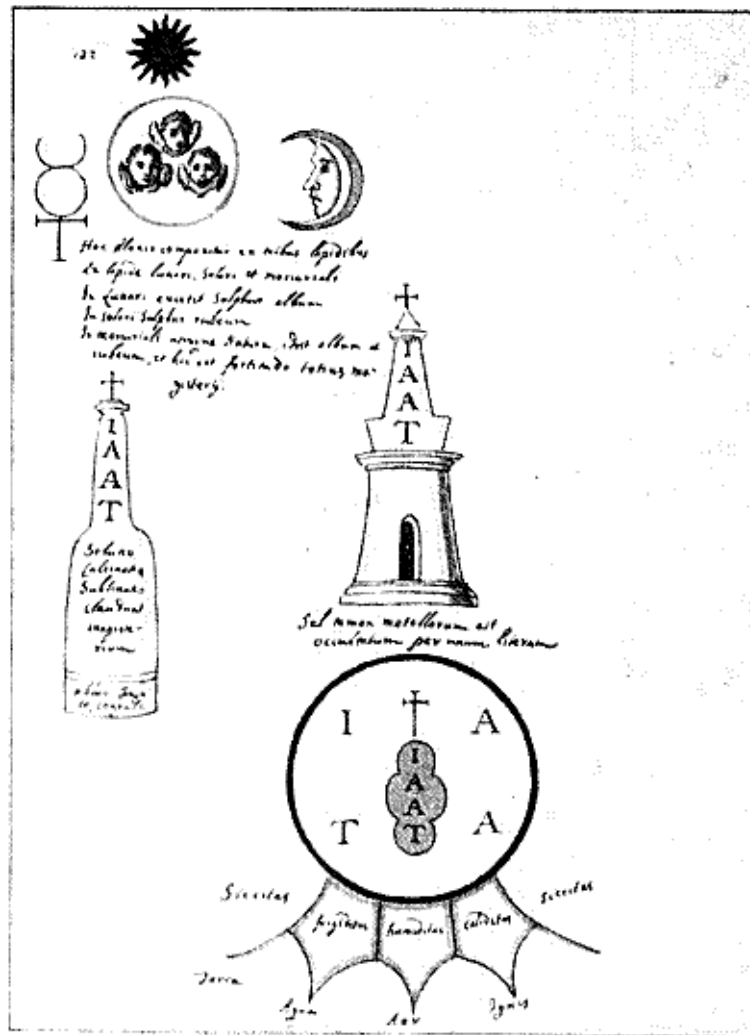 122
Hoc compositio ex tribus lapidibus
Ex lapide lunari, Solari et mercuriali
In Lunari existit Sulphur album
In solari Sulphur rubeum
In mercuriali Natura, album et
rubeum, et est fortitudo totius ma-
gisterij.
I
A
A
T
I
A
A
T
Solutio
Calcinatio
Sublimatio
claudunt
magiste-
rium
Sal tamen metallorum est
occultatum per unam literam
I A
I
A
A
T
T A
Siccitas Siccitas
frigiditas humiditas caliditas
Terra
Aqua Aer Ignis